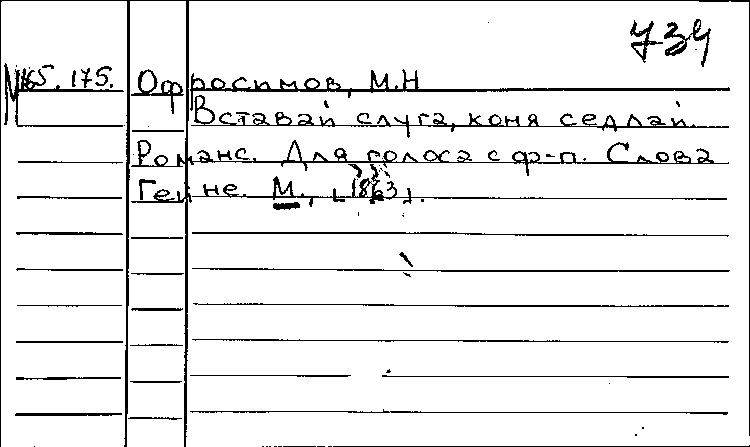 734
М65.175. Офросимов, М.Н
Вставай слуга, коня седлай.
Романс. Для голоса с ф-п. Слова
Гейне. М., [1863].